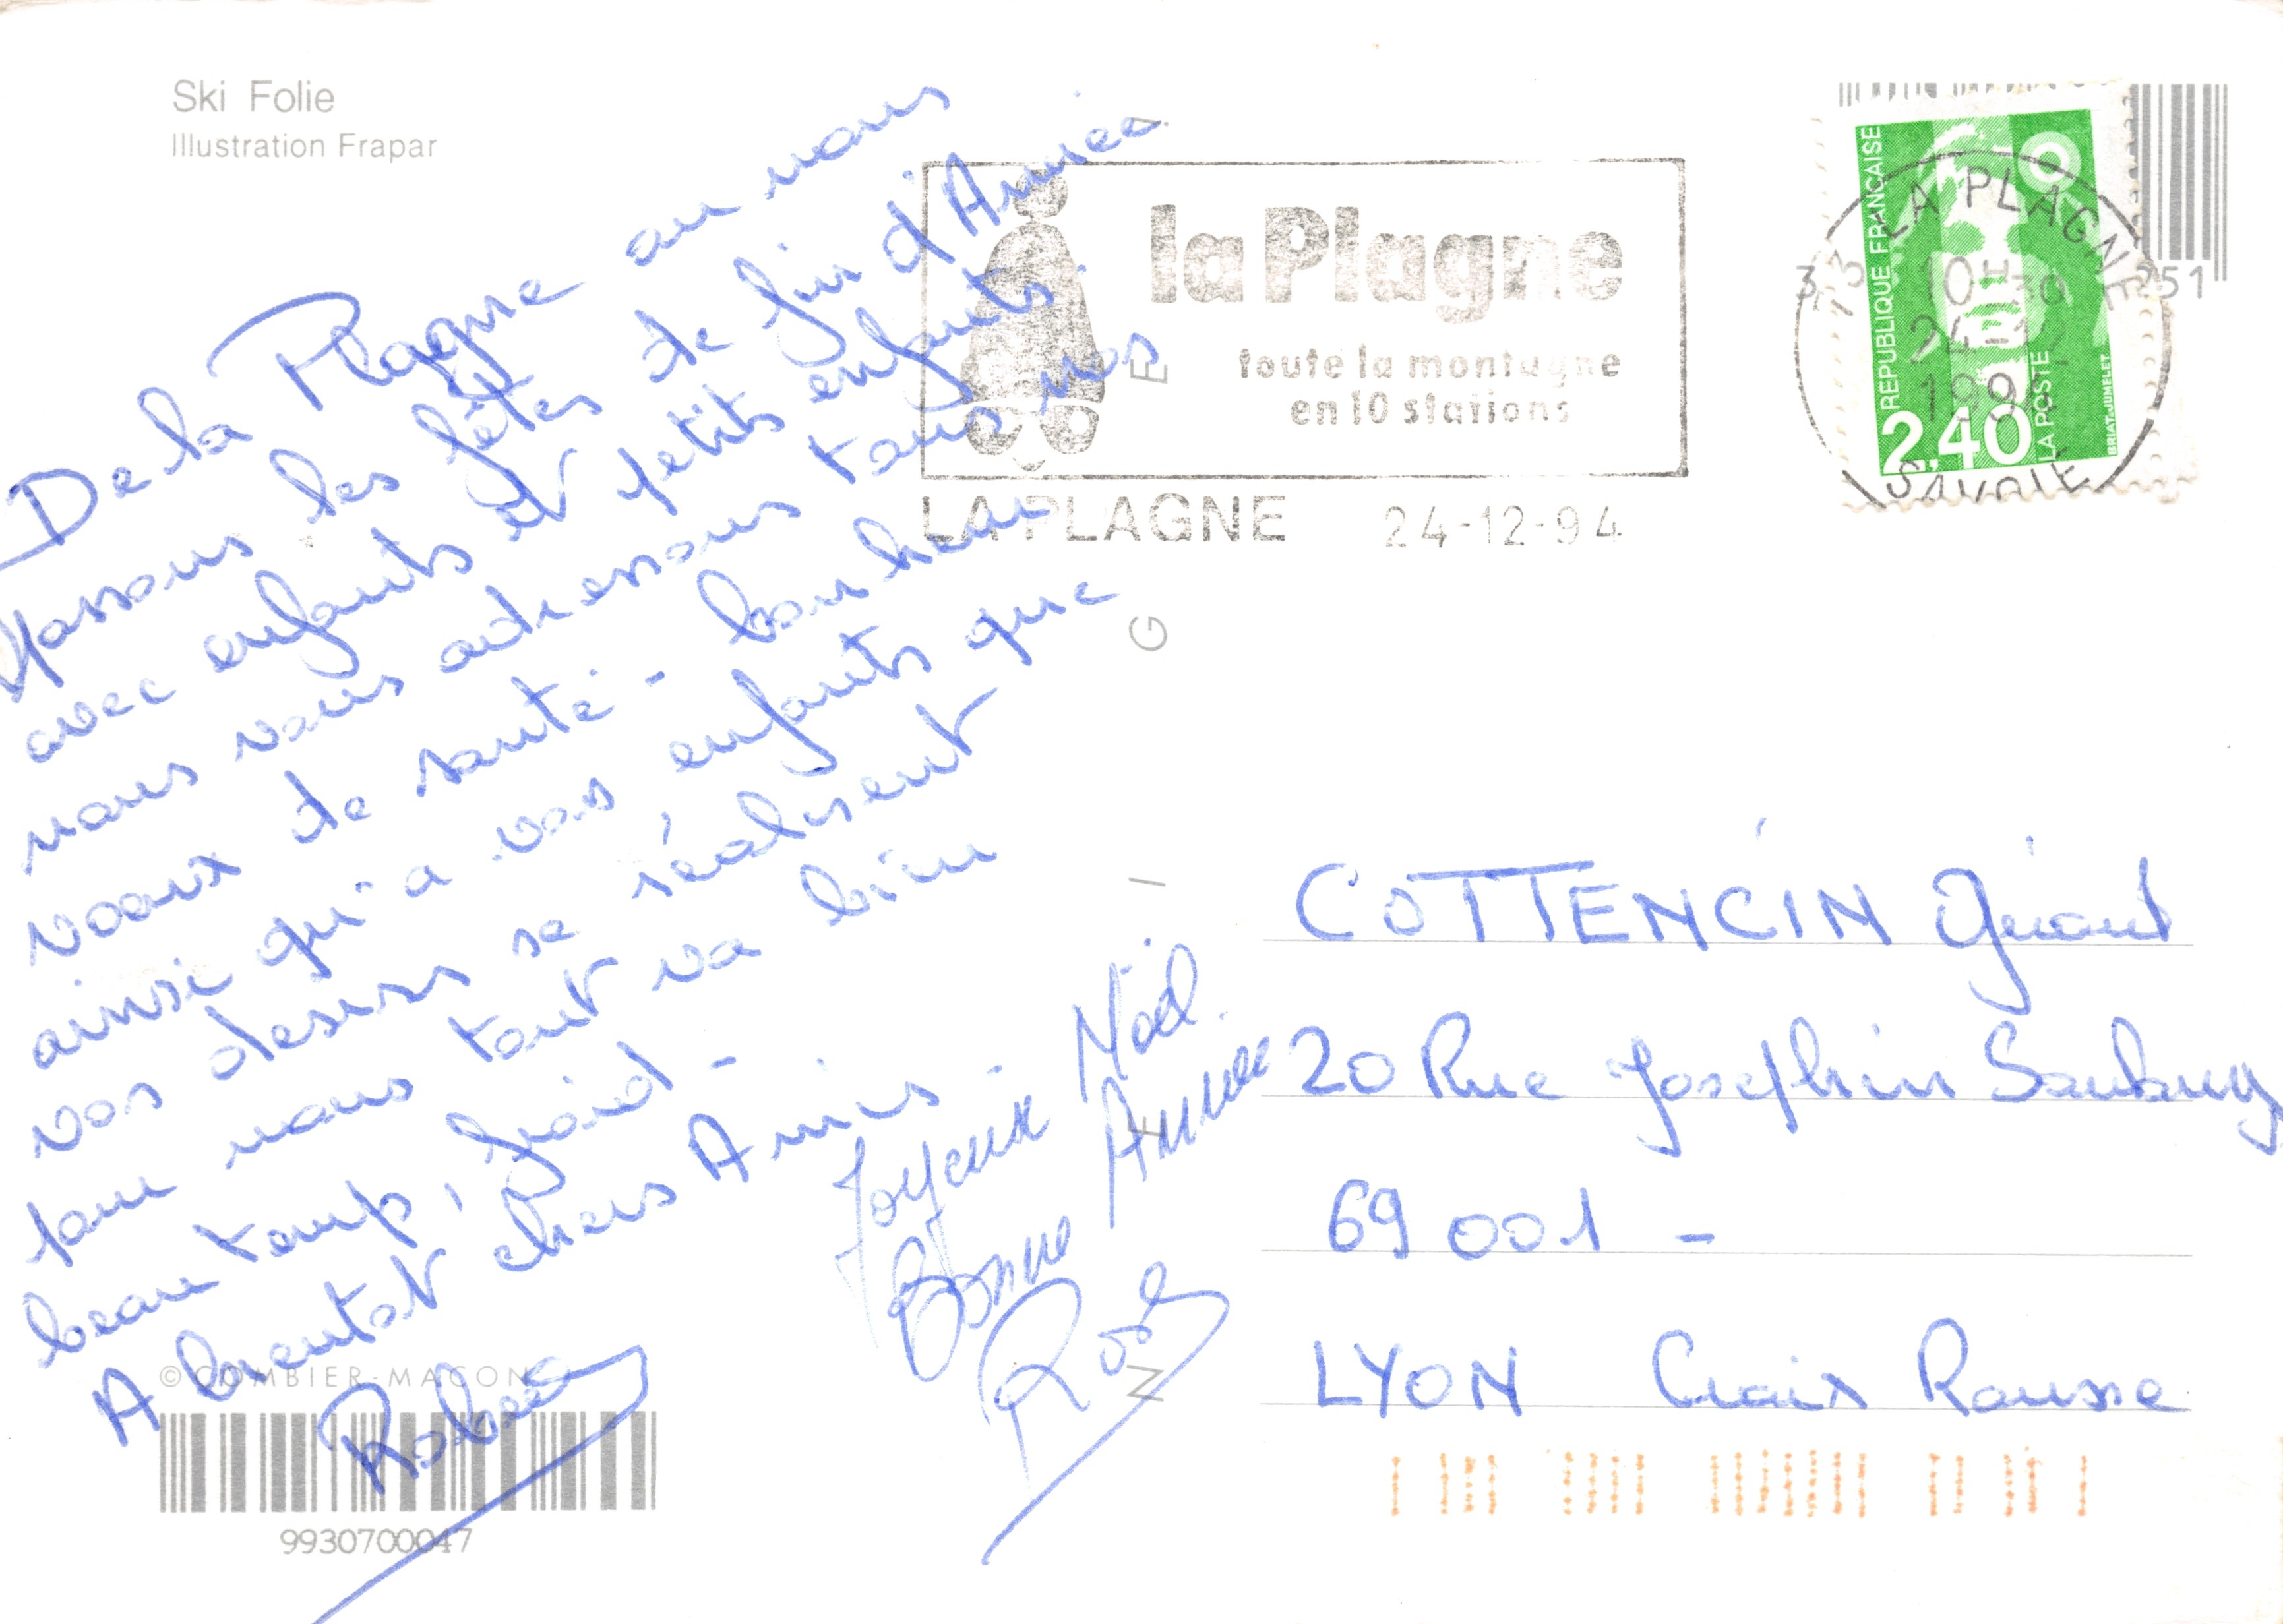 Ski Folie
Illustration Frapar
De la Plagne ou nous
passons les fêtes de fin d'Année
avec enfants et petits enfants
nous vous adressons tous nos
voeux de santé - bonheur
ainsi qu'a vos enfants que
vos desirs se réalisent
pour nous tout va bien
beau temps, froid -
A bientot chers Amis -
Joyeux Noël.
Bonne Année
© COMBIER-MACON
9930700047
la Plagne
toute la montagne
en 10 stations
LA PLAGNE 24-12-94
REPUBLIQUE FRANÇAISE
2,40
LA POSTE
BRIAT-JUMELET
LA PLAGNE
10H
24-12
SAVOIE
251
COTTENCIN Gérard
20 Rue Josephin Soulary
69001 -
LYON Croix Rousse